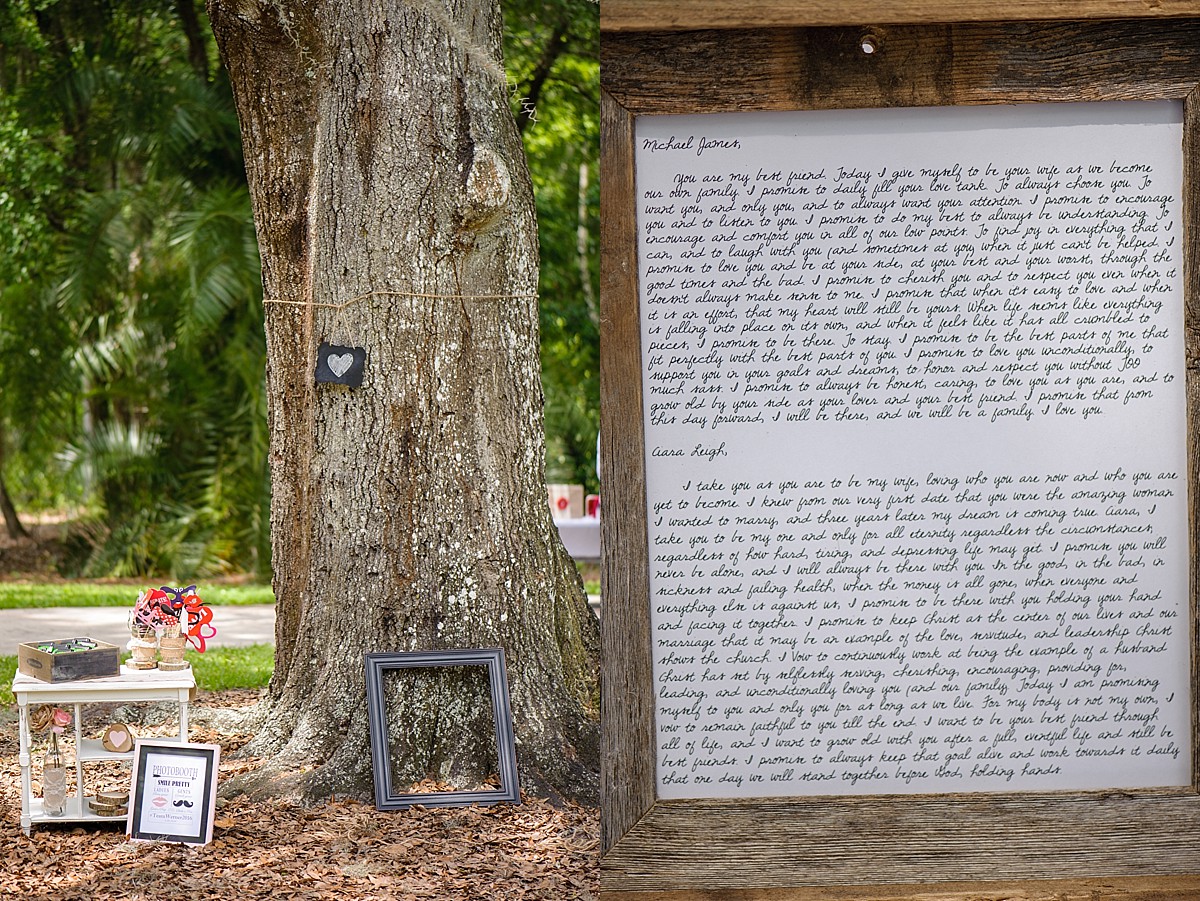 PHOTOBOOTH
SMILE PRETTY
LADIES GENTS
Michael James,
You are my best friend. Today I give myself to be your wife as we become
our own family. I promise to daily fill your love tank. To always choose you. To
want you, and only you, and to always want your attention. I promise to encourage
you and to listen to you. I promise to do my best to always be understanding. To
encourage and comfort you in all of our low points. To find joy in everything that I
can, and to laugh with you (and sometimes at you, when it just can't be helped. I
promise to love you and be at your side, at your best and your worst, through the
good times and the bad. I promise to cherish you and to respect you even when it
doesn't always make sense to me. I promise that when it's easy to love and when
it is an effort, that my heart will still be yours. When life seems like everything
is falling into place on its own, and when it feels like it has all crumbled to
pieces, I promise to be there. To stay. I promise to be the best parts of me that
fit perfectly with the best parts of you. I promise to love you unconditionally, to
support you in your goals and dreams, to honor and respect you without TOO
much sass. I promise to always be honest, caring, to love you as you are, and to
grow old by your side as your lover and your best friend. I promise that from
this day forward, I will be there, and we will be a family. I love you.
Ciara Leigh,
I take you as you are to be my wife, loving who you are now and who you are
yet to become. I knew from our very first date that you were the amazing woman
I wanted to marry, and three years later my dream is coming true. Ciara, I
take you to be my one and only for all eternity regardless the circumstances,
regardless of how hard, tiring, and depressing life may get. I promise you will
never be alone, and I will always be there with you. In the good, in the bad, in
sickness and failing health, when the money is all gone, when everyone and
everything else is against us, I promise to be there with you holding your hand
and facing it together. I promise to keep Christ as the center of our lives and our
marriage that it may be an example of the love, servitude, and leadership Christ
shows the church. I Vow to continuously work at being the example of a husband
Christ has set by selflessly serving, cherishing, encouraging, providing for,
leading, and unconditionally loving you (and our family. Today I am promising
myself to you and only you for as long as we live. For my body is not my own, I
vow to remain faithful to you till the end. I want to be your best friend through
all of life, and I want to grow old with you after a full, eventful life and still be
best friends. I promise to always keep that goal alive and work towards it daily
that one day we will stand together before God, holding hands.